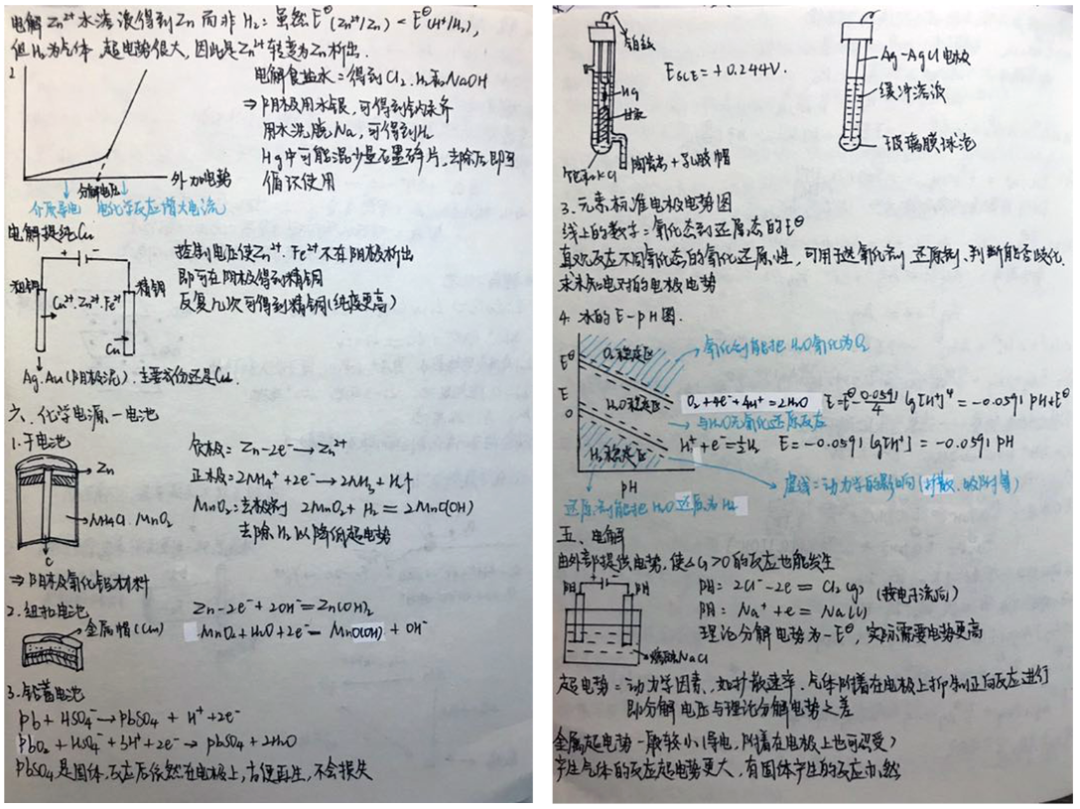 电解Zn²⁺水溶液得到Zn而非H₂：虽然E^θ(Zn²⁺/Zn) < E^θ(H⁺/H₂),
但H₂为气体，超电势很大，因此是Zn²⁺转变为Zn析出.
I
电解食盐水：得到Cl₂.H₂和NaOH
⇒ 阴极用水银，可得到钠汞齐
用水洗脱Na，可得到H₂
Hg中可能混少量石墨碎片，去除后即可
循环使用
外加电势
分解电压
介质导电 电化学反应增大电流
电解提纯Cu
+ -
粗铜
精铜
Cu²⁺.Zn²⁺.Fe²⁺
Cu
控制电压使Zn²⁺.Fe²⁺不在阴极析出
即可在阴极得到精铜
反复几次可得到精铜(纯度更高)
Ag.Au(阳极泥).主要成份还是Cu.
六、化学电源—电池
1.干电池
Zn
NH₄Cl MnO₂
C
负极：Zn-2e⁻→Zn²⁺
正极：2NH₄⁺+2e⁻→2NH₃+H₂↑
MnO₂：去极剂 2MnO₂+H₂=2MnO(OH)
去除H₂以降低超电势
2.纽扣电池
金属帽(Cu)
Zn-2e⁻+2OH⁻=Zn(OH)₂
MnO₂+H₂O+2e⁻ MnO(OH)+OH⁻
3.铅蓄电池
Pb+HSO₄⁻→PbSO₄+H⁺+2e⁻
PbO₂+HSO₄⁻+3H⁺+2e⁻→PbSO₄+2H₂O
PbSO₄是固体，反应后依然在电极上，方便再生，不会损失
铂丝
Hg
甘汞
饱和KCl
E_SCE=+0.244V.
Ag-AgCl电极
缓冲溶液
玻璃膜球泡
3.元素标准电极电势图
线上的数字=氧化态到还原态的E^θ
直观反应不同氧化态的氧化还原性，可用于选氧化剂.还原剂、判断能否歧化.
求未知电对的电极电势
4.水的E-pH图.
E^θ
E
0
O₂稳定区
氧化剂能把H₂O氧化为O₂
H₂O稳定区
O₂+4e⁻+4H⁺=2H₂O E=E^θ 0.0591/4 lg[H⁺]⁴=-0.0591pH+E^θ
与H₂O无氧化还原反应
H₂稳定区
H⁺+e⁻=½H₂ E=-0.0591 lg[H⁺]=-0.0591 pH
pH
虚线=动力学的影响(扩散、吸附等)
还原剂能把H₂O还原为H₂
五、电解
由外部提供电势，使△G>0的反应也能发生
+ -
熔融NaCl
阳：2Cl⁻-2e=Cl₂(g) (按电子流向)
阴：Na⁺+e=Na(l)
理论分解电势为-E^θ，实际需要电势更高
超电势=动力学因素，如扩散速率.气体附着在电极上抑制正向反应进行
即分解电压与理论分解电势之差
金属超电势一般较小(导电，附着在电极上也可接受)
产生气体的反应超电势更大，有固体产生的反应亦然